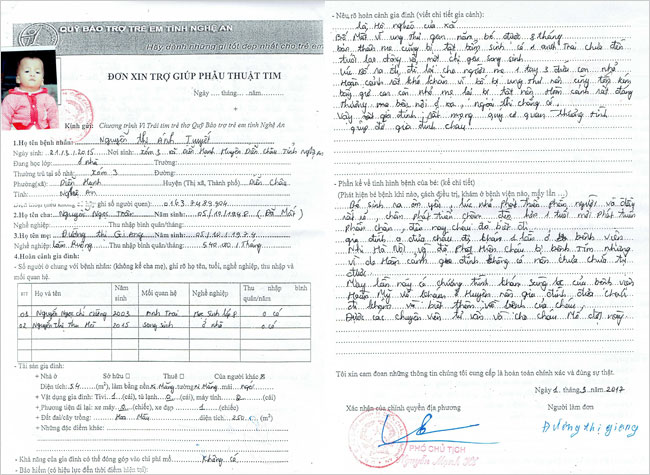 QUỸ BẢO TRỢ TRẺ EM TỈNH NGHỆ AN
Hãy dành những gì tốt đẹp nhất cho trẻ em
ĐƠN XIN TRỢ GIÚP PHẪU THUẬT TIM
Ngày .... tháng .... năm
Kính gửi: Chương trình Vì Trái tim trẻ thơ Quỹ Bảo trợ trẻ em tỉnh Nghệ An
1.Họ tên bệnh nhân: Nguyễn Thị Ánh Tuyết
Nơi sinh: xóm 3 xã Diễn Mạnh Huyện Diễn Châu Tỉnh Nghệ An
Đang học lớp: ở nhà Trường:
Thường trú tại số nhà: xóm 3 Đường:
Phường(xã): Diễn Mạnh Huyện (Thị xã, Thành phố) Diễn Châu
Tỉnh: Nghệ An
số người quen) 01637489904
2.Họ tên cha: Nguyễn Ngọc Trân Năm sinh: 05/10/1948 (Đã Mất)
Nghề nghiệp: Thu nhập bình quân/tháng:
3.Họ tên mẹ: Đường Thị Giong Năm sinh: 05/10/1974
Nghề nghiệp: Làm Ruộng Thu nhập bình quân/tháng: 540.000/Tháng
4.Hoàn cảnh gia đình:
- Số người ở chung với bệnh nhân: (không kể cha mẹ), ghi rõ họ tên, tuổi, nghề nghiệp, thu nhập và
mối quan hệ.
STT Họ và tên Năm sinh Mối quan hệ Nghề nghiệp Thu nhập bình quân/năm
01 Nguyễn Ngọc 2003 Anh Trai Học sinh lớp 8 0 có
02 Nguyễn Thị Thu Mơ 2015 song sinh ở nhà 0 có
- Tài sản gia đình:
+ Nhà ở Sở hữu Thuê Của người khác
Diện tích: 54 (m²), làm bằng: tường mái ngói
+ Vật dụng gia đình: Tivi 1 (cái), tủ lạnh 0 (cái), máy tính 0 (cái)
+ Phương tiện đi lại: xe máy 0 (chiếc), xe đạp 1 (chiếc)
+ Đất đai/cây trồng: Hoa Mầu diện tích 250 (m²)
+ Những đặc điểm khác:
- Khả năng của gia đình có thể đóng góp vào chi phí mổ: Không có
- Bảo hiểm (có hiệu lực đến thời điểm hiện tại):
- Nêu rõ hoàn cảnh gia đình (viết chi tiết gia cảnh):
là Hộ nghèo của xã
Bố Mất vì ung thư gan năm bé được 8 tháng
bản thân mẹ cũng bị tật bẩm sinh có 1 anh Trai chưa đến
tuổi lao động và một chị gái song sinh
Lúc bố ra đi để lại cho người mẹ 1 tay 3 đứa con nhỏ
Hoàn cảnh rất khó khăn vì bố bị ung thư nên cũng tốn kém
con nhỏ mẹ lại bị tật nên Hoàn cảnh rất đáng
thương
Vậy nên gia đình rất mong quý cơ quan thương tình
giúp đỡ gia đình cháu!
- Phần kể về tình hình bệnh của bé: (kể chi tiết)
(Phát hiện bị bệnh khi nào, cách điều trị, khám ở bệnh viện nào, mấy lần ...)
Bé sinh ra ốm yếu
chậm phát triển chậm đến hơn 1 tuổi mới Phát triển
gia đình có đưa cháu đi khám 1 lần ở bệnh viện
Nhi Hà Nội và đã Phát Hiện cháu bị bệnh Tim nhưng
vì do Hoàn cảnh gia đình không có nên chưa chữa trị
được
Mấy lần nay có chương trình khám sàng lọc của bệnh viện
Huyện nên gia đình đưa cháu
đi khám và biết thêm về bệnh của cháu,
Được các chuyên viên tư vấn và cho cháu Mổ đợt này
Tôi xin cam đoan những thông tin chúng tôi cung cấp là hoàn toàn chính xác và đúng sự thật.
Ngày 1 tháng 3 năm 2017
Xác nhận của chính quyền địa phương Người làm đơn
PHÓ CHỦ TỊCH
Đường thị giong